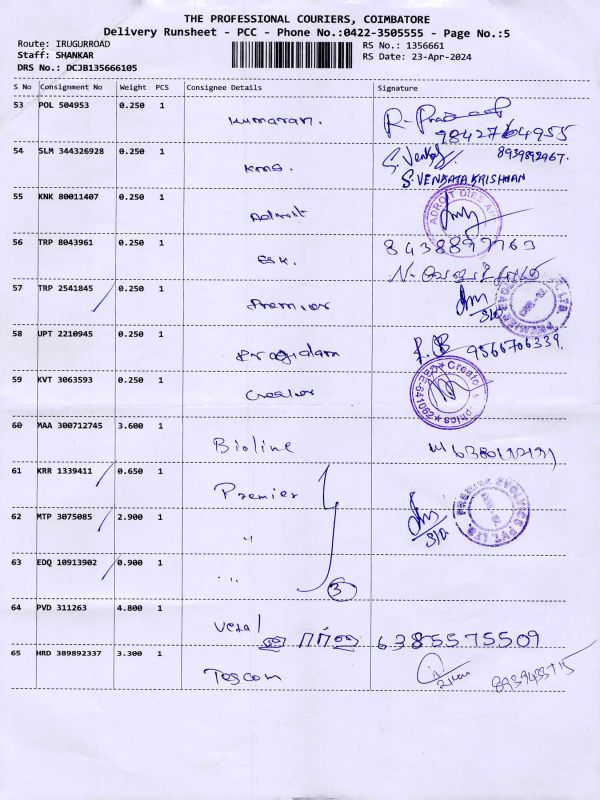 THE PROFESSIONAL COURIERS, COIMBATORE
Delivery Runsheet - PCC - Phone No.:0422-3505555 - Page No.:5
Route: IRUGURROAD
RS No.: 1356661
Staff: SHANKAR
RS Date: 23-Apr-2024
DRS No.: DCJB135666105
S No Consignment No Weight PCS Consignee Details Signature
53 POL 504953 0.250 1
Kumaran.
9842764955
54 SLM 344326928 0.250 1
8939892467.
KMS.
S.VENKATAKRISHNAN
55 KNK 80011407 0.250 1
Adroit
ADROIT DIES
56 TRP 8043961 0.250 1
8438877763
57 TRP 2541845 0.250 1
Premier
58 UPT 2210945 0.250 1
9566706339.
59 KVT 3063593 0.250 1
Creator
Creator
CBE-641062
60 MAA 300712745 3.600 1
Bioline
61 KRR 1339411 0.650 1
Premier
62 MTP 3075085 2.900 1
"
PREMIER EVOLVICS PVT. LTD.
63 EDQ 10913902 0.900 1
"
3
64 PVD 311263 4.800 1
6385575509
65 HRD 389892337 3.300 1
Texcon